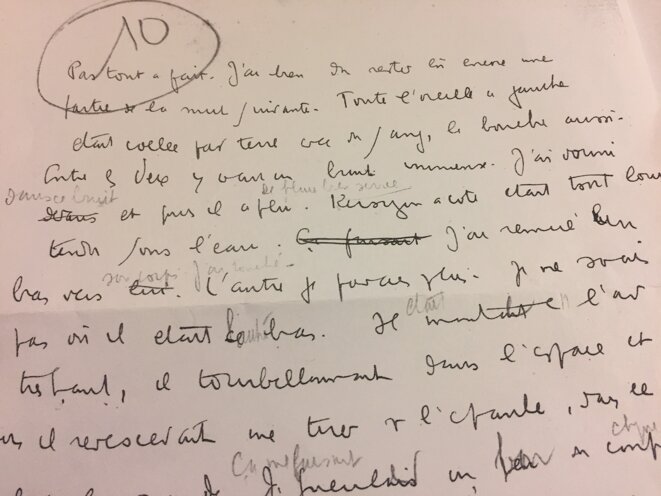 10
Pas tout a fait. J'ai bien du rester là encore une
partie de la nuit suivante. Toute l'oreille a gauche
etait collée par terre avec du sang, la bouche aussi.
Entre les deux y avait un bruit immense. J'ai dormi
dans ce bruit
et puis il a plu. Kersuzon a coté etait tout lourd
tendu sous l'eau. Ça faisait J'ai remué un
son corps
bras vers lui. L'autre je pouvais plus. Je ne savais
pas où il etait l'autre bras. Il était
tres haut, il tourbillonnait dans l'espace et
puis il redescendait me tirer sur l'épaule, dans le
Ça me faisait